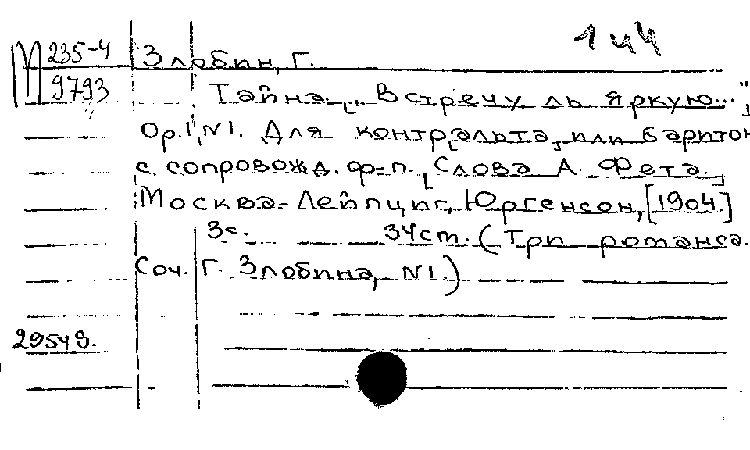 144
М 235-4 Злобин, Г.
9793 Тайна. [„Встречу ль яркую..."]
Op.1,N1. Для контр[альта] или баритон
с сопровожд. ф-п. [Слова А. Фета.]
Москва-Лейпциг, Юргенсон, [1904.]
3с. 34ст. (Три романса.
Соч. Г. Злобина, N1.)
29549.